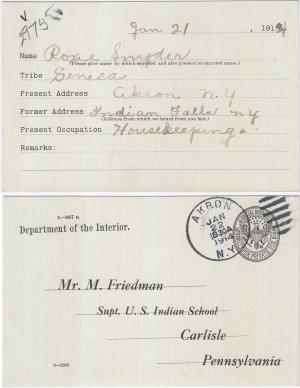 ✓
2975
Jan 21, 1914
Name Roxie Snyder
(Please give name by which enrolled and also present or married name.)
Tribe Seneca
Present Address Akron N.Y
Former Address Indian Falls NY
(Address from which we heard from you last.)
Present Occupation Housekeeping.
Remarks:
5—567 a
Department of the Interior.
AKRON
JAN
22
1914
N.Y.
Mr. M. Friedman
Supt. U. S. Indian School
Carlisle
Pennsylvania